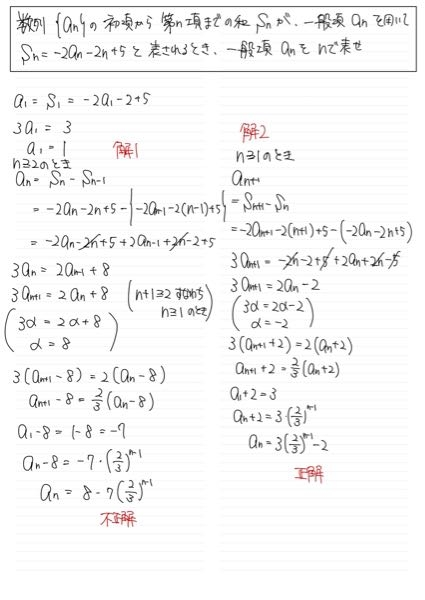 数列{an}の初項から第n項までの和 Snが、一般項 anを用いて
Sn=-2an-2n+5と表されるとき、一般項 anをnで表せ
a1=S1=-2a1-2+5
3a1=3
a1=1
解1
n≧2のとき
an=Sn-Sn-1
=-2an-2n+5-{-2an-1-2(n-1)+5}
=-2an-2n+5+2an-1+2n-2+5
3an=2an-1+8
3an+1=2an+8 (n+1≧2 すなわち
n≧1のとき)
(3α=2α+8
α=8)
3(an+1-8)=2(an-8)
an+1-8=2/3(an-8)
a1-8=1-8=-7
an-8=-7・(2/3)^n-1
an=8-7(2/3)^n-1
不正解
解2
n≧1のとき
an+1
=Sn+1-Sn
=-2an+1-2(n+1)+5-(-2an-2n+5)
3an+1=-2n-2+5+2an+2n-5
3an+1=2an-2
(3α=2α-2
α=-2)
3(an+1+2)=2(an+2)
an+1+2=2/3(an+2)
a1+2=3
an+2=3・(2/3)^n-1
an=3(2/3)^n-1-2
正解